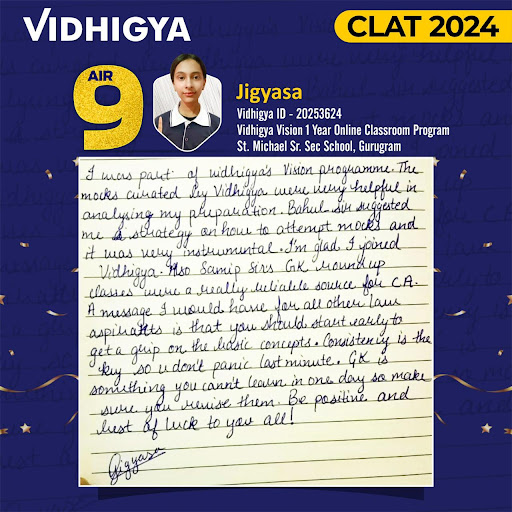 VIDHIGYA
CLAT 2024
AIR
9
Jigyasa
Vidhigya ID - 20253624
Vidhigya Vision 1 Year Online Classroom Program
St. Michael Sr. Sec School, Gurugram
I was part of vidhigya's Vision programme. The
mocks curated by Vidhigya were very helpful in
analysing my preparation. Rahul sir suggested
me a strategy on how to attempt mocks and
it was very instrumental. I'm glad I joined
Vidhigya. Also Samip Sirs GK roundup
classes were a really reliable source for C.A.
A message I would have for all other law
aspirants is that you should start early to
get a grip on the basic concepts. Consistency is the
key so u don't panic last minute. GK is
something you cann't learn in one day so make
sure you revise them. Be positive and
best of luck to you all!
Jigyasa